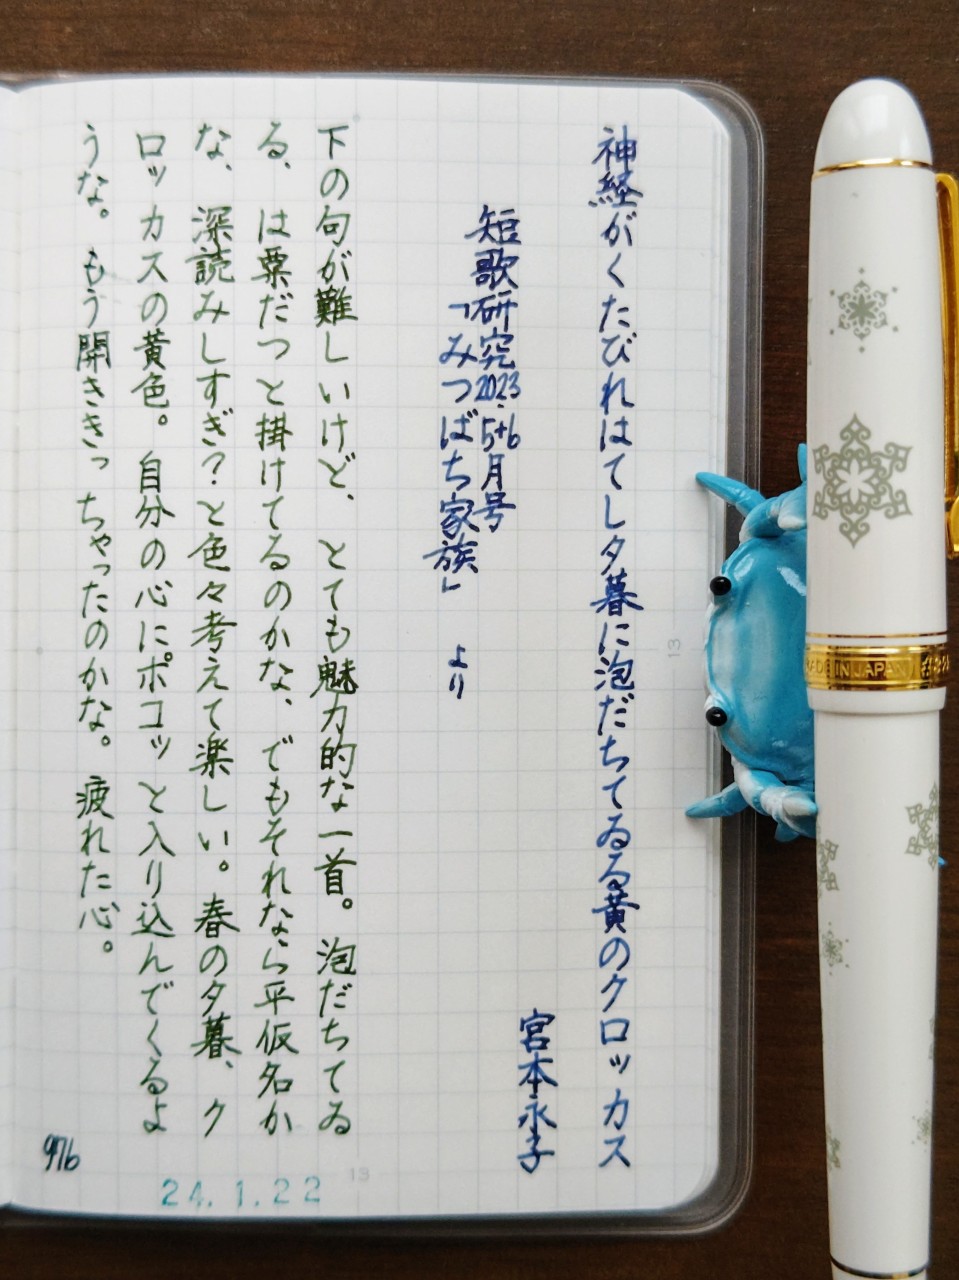 神経がくたびれはてし夕暮に泡だちてゐる黄のクロッカス
宮本永子
短歌研究2023.5+6月号
「みつばち家族」 より
下の句が難しいけど、とても魅力的な一首。泡だちてゐ
る、は粟だつと掛けてるのかな、でもそれなら平仮名か
な、深読みしすぎ?と色々考えて楽しい。春の夕暮、ク
ロッカスの黄色。自分の心にポコッと入り込んでくるよ
うな。もう開ききっちゃったのかな。疲れた心。
976
24.1.22
13
13
MADE IN JAPAN